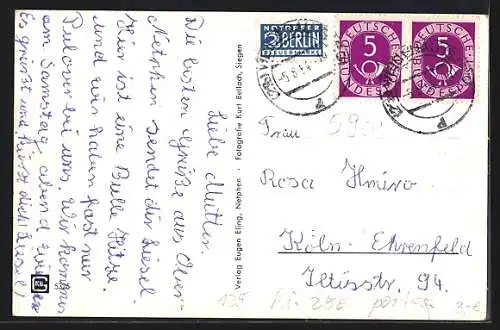 Liebe Mutter.
Die besten Grüße aus Ober-
Netphen sendet dir Liesel.
Hier ist eine Bulle Hitze
und wir haben fast nur
Pulover bei uns. Wir kommen
am Samstag abend zurück
Es grüßt und küsst dich Liesel!
Verlag Eugen Eling, Netphen · Fotografie Kurt Bellach, Siegen
5
DEUTSCHE
BUNDESPOST
5
DEUTSCHE
BUNDESPOST
NOTOPFER
2 BERLIN
STEUERMARKE
Frau
Rosa
Köln-Ehrenfeld
Iltisstr. 94.